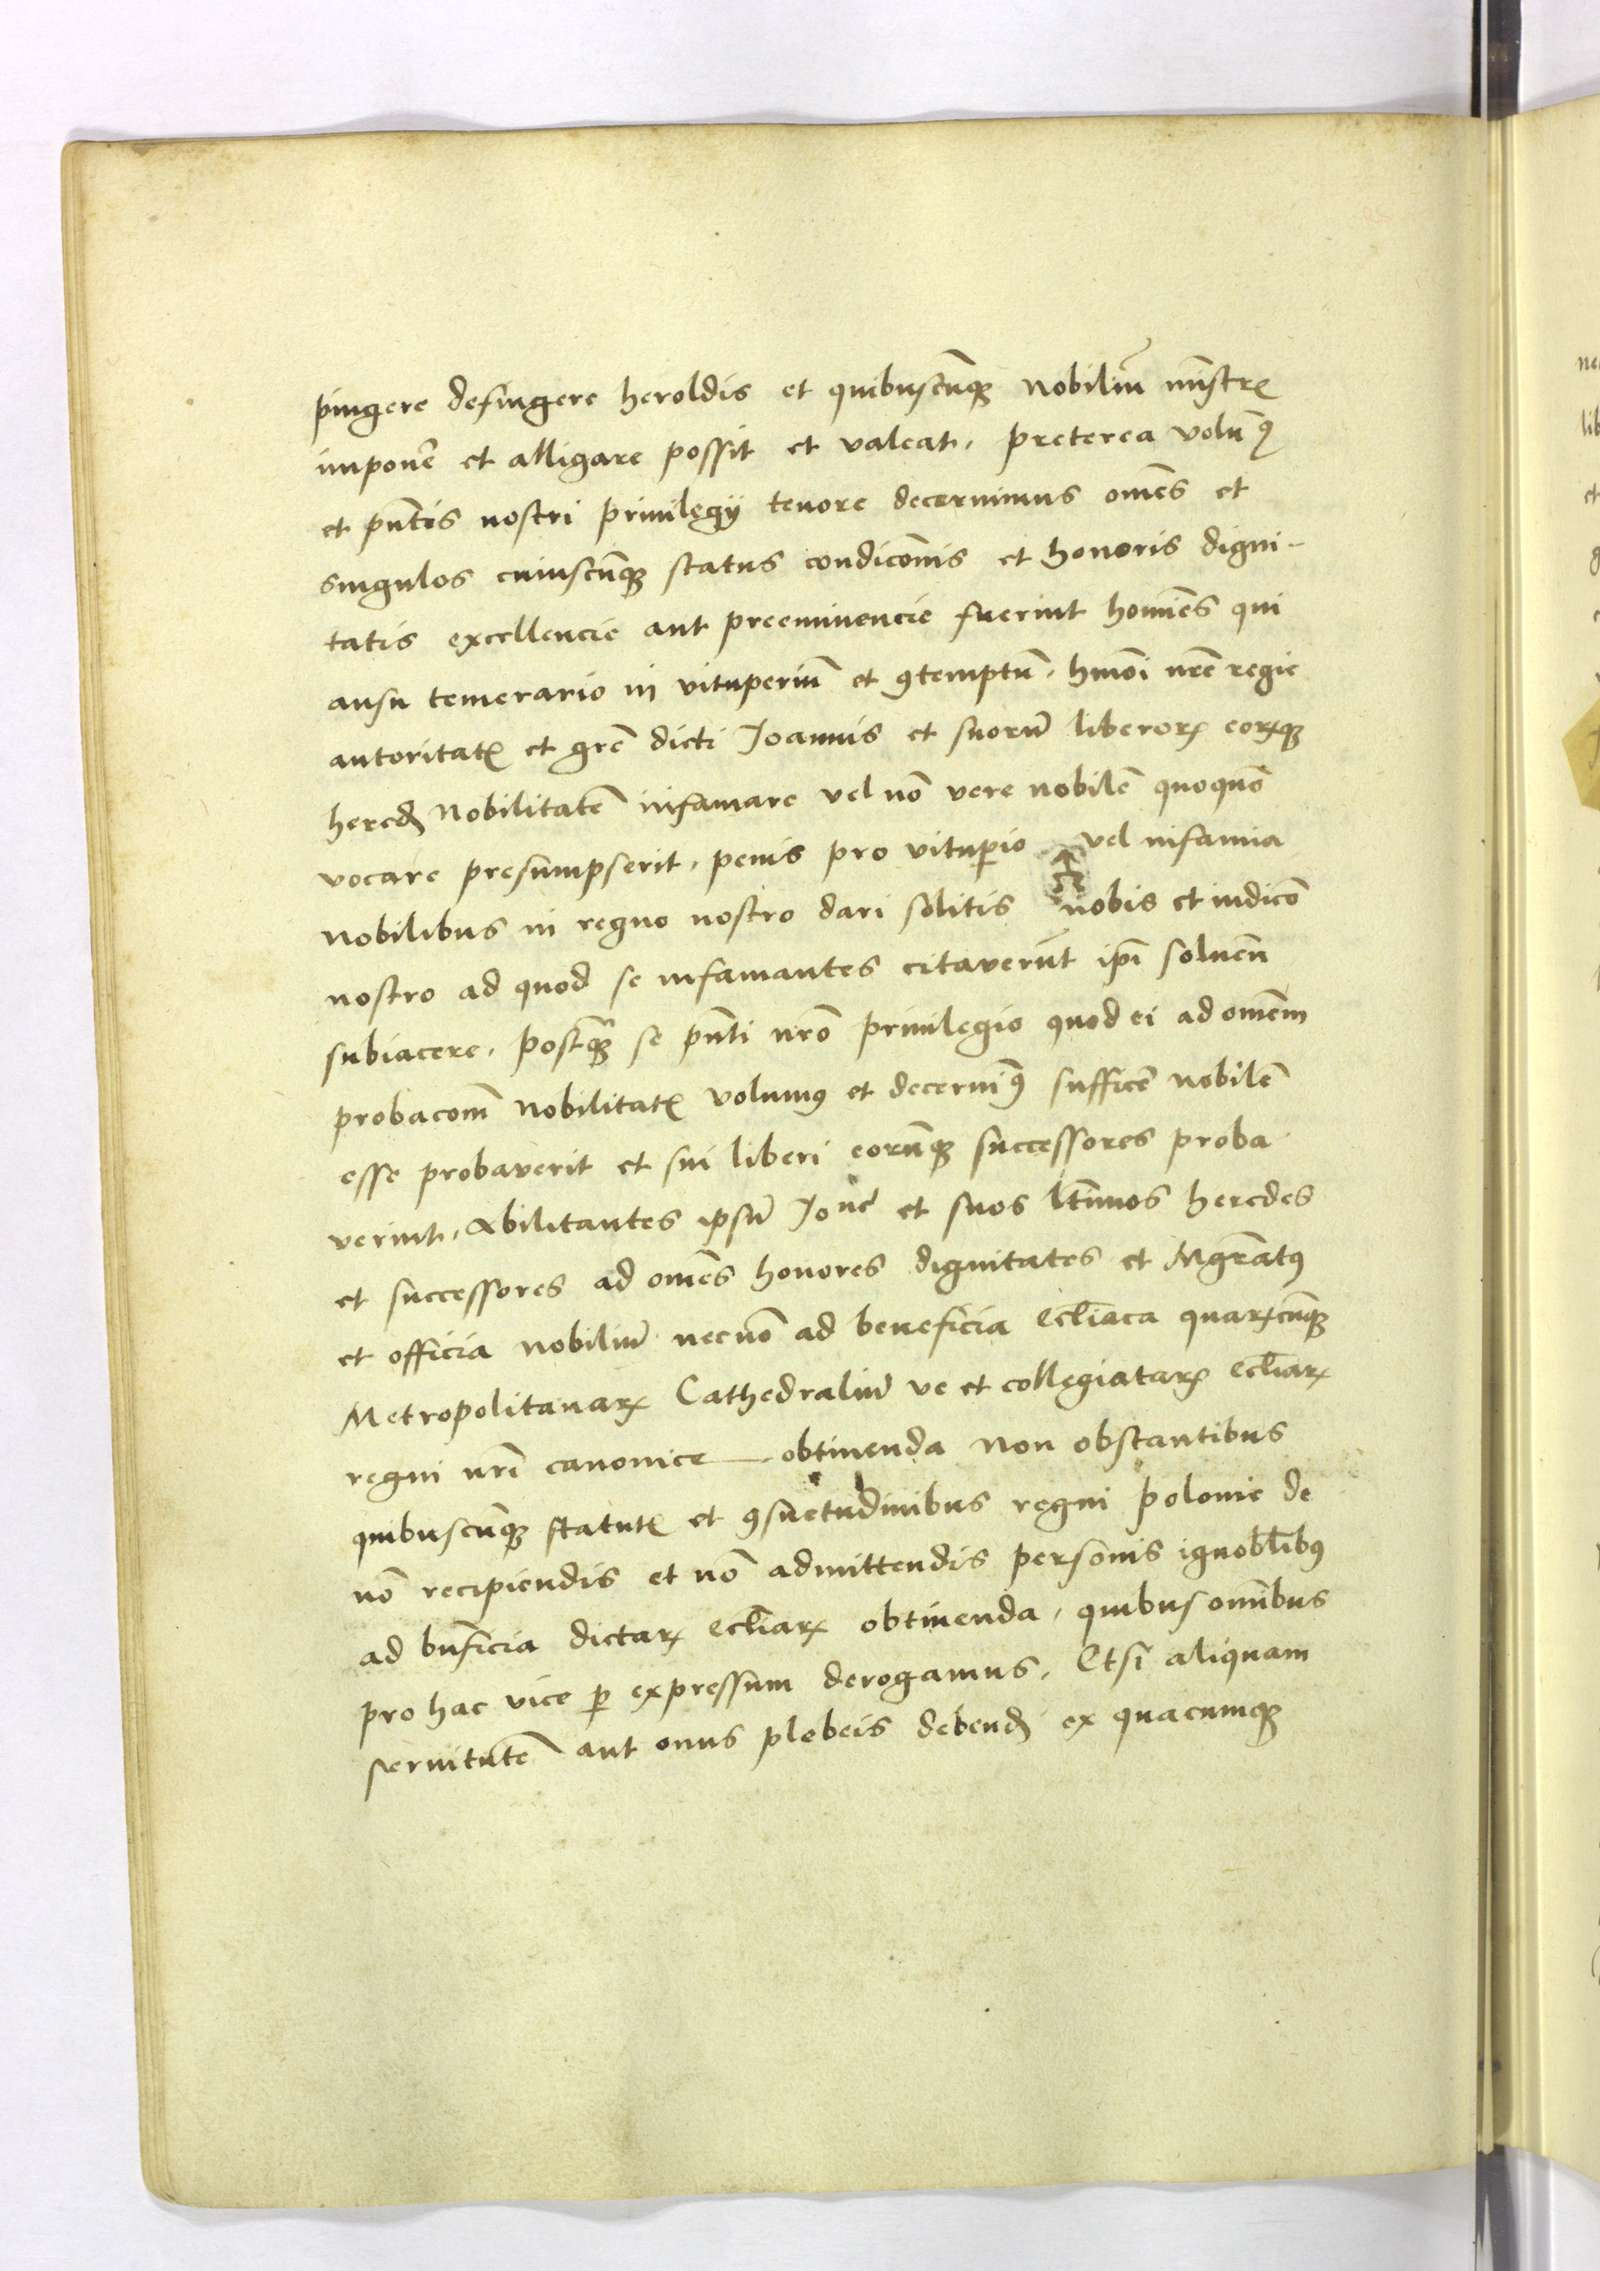 pingere defingere heroldis et quibuscūq₃ nobiliū mīstrꝭ
imponēe et alligare possit et valeat, preterea volum⁹
et pn̄tis nostri privilegy tenore decernimus om̄es et
singulos cuiuscūq₃ status condicōnis et honoris digni-
tatis excellencie aut preeminencie fuerint homīes qui
ausu temerario in vituperiū et ꝯtemptū, hmōi nr̄e regie
autoritatꝭ et grē dicti Joannis et suorū liberoꝝ eoꝝq₃
heređ nobilitatē infamare vel nō vere nobilē quoquō
vocare presumpserit, penis pro vituꝑio vel infamia
nobilibus in regno nostro dari solitis nobis et iudicō
nostro ad quod se infamantes citaverūt ip̄i soluen̄
subiacere, postq̄₃ se pn̄ti nr̄o privilegio quod ei ad om̄em
probacom̄ nobilitatꝭ volumꝰ et decernimꝰ sufficē nobilē
esse probaverit et sui liberi eorūq₃ successores proba
verint, Abilitantes ipsū Joneˉ et suos ltīmos heredes
et successores ad om̄es honores dignitates et Mgrātꝰ
et officia nobiliū necnō ad beneficia ecl̄iaca quaꝝcūq₃
Metropolitanaꝝ Cathedraliū ve et collegiataꝝ ecl̄iaꝝ
regni nr̄i canonice obtinenda non obstantibus
quibuscūq₃ statutꝭ et ꝯsuetudinibus regni polonie de
nō recipiendis et nō admittendis personis ignobl̄ibꝰ
ad bn̄ficia dictaꝝ ecl̄iaꝝ obtinenda, quibus om̄ibus
pro hac vice ꝑ expressum derogamus, Etsi aliquam
servitutē aut onus plebeis debenđ ex quacumq₃